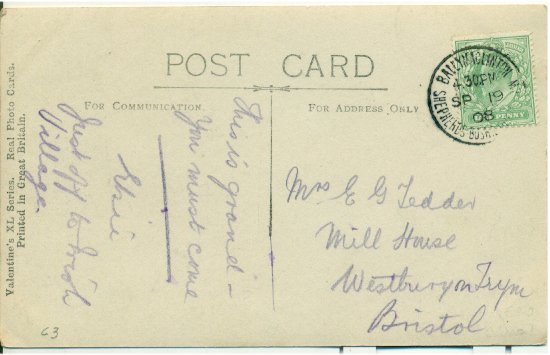 POST CARD
FOR COMMUNICATION.
FOR ADDRESS ONLY
Valentine's XL Series. Real Photo Cards.
Printed in Great Britain.
This is grand –
You must come
Elsie
Just off to Irish
Village.
BALLYMACLINTON
4.30PM
SP 19
08
SHEPHERDS BUSH.
PENNY
Mrs E G Tedder
Mill House
Westbury on Trym
Bristol
63